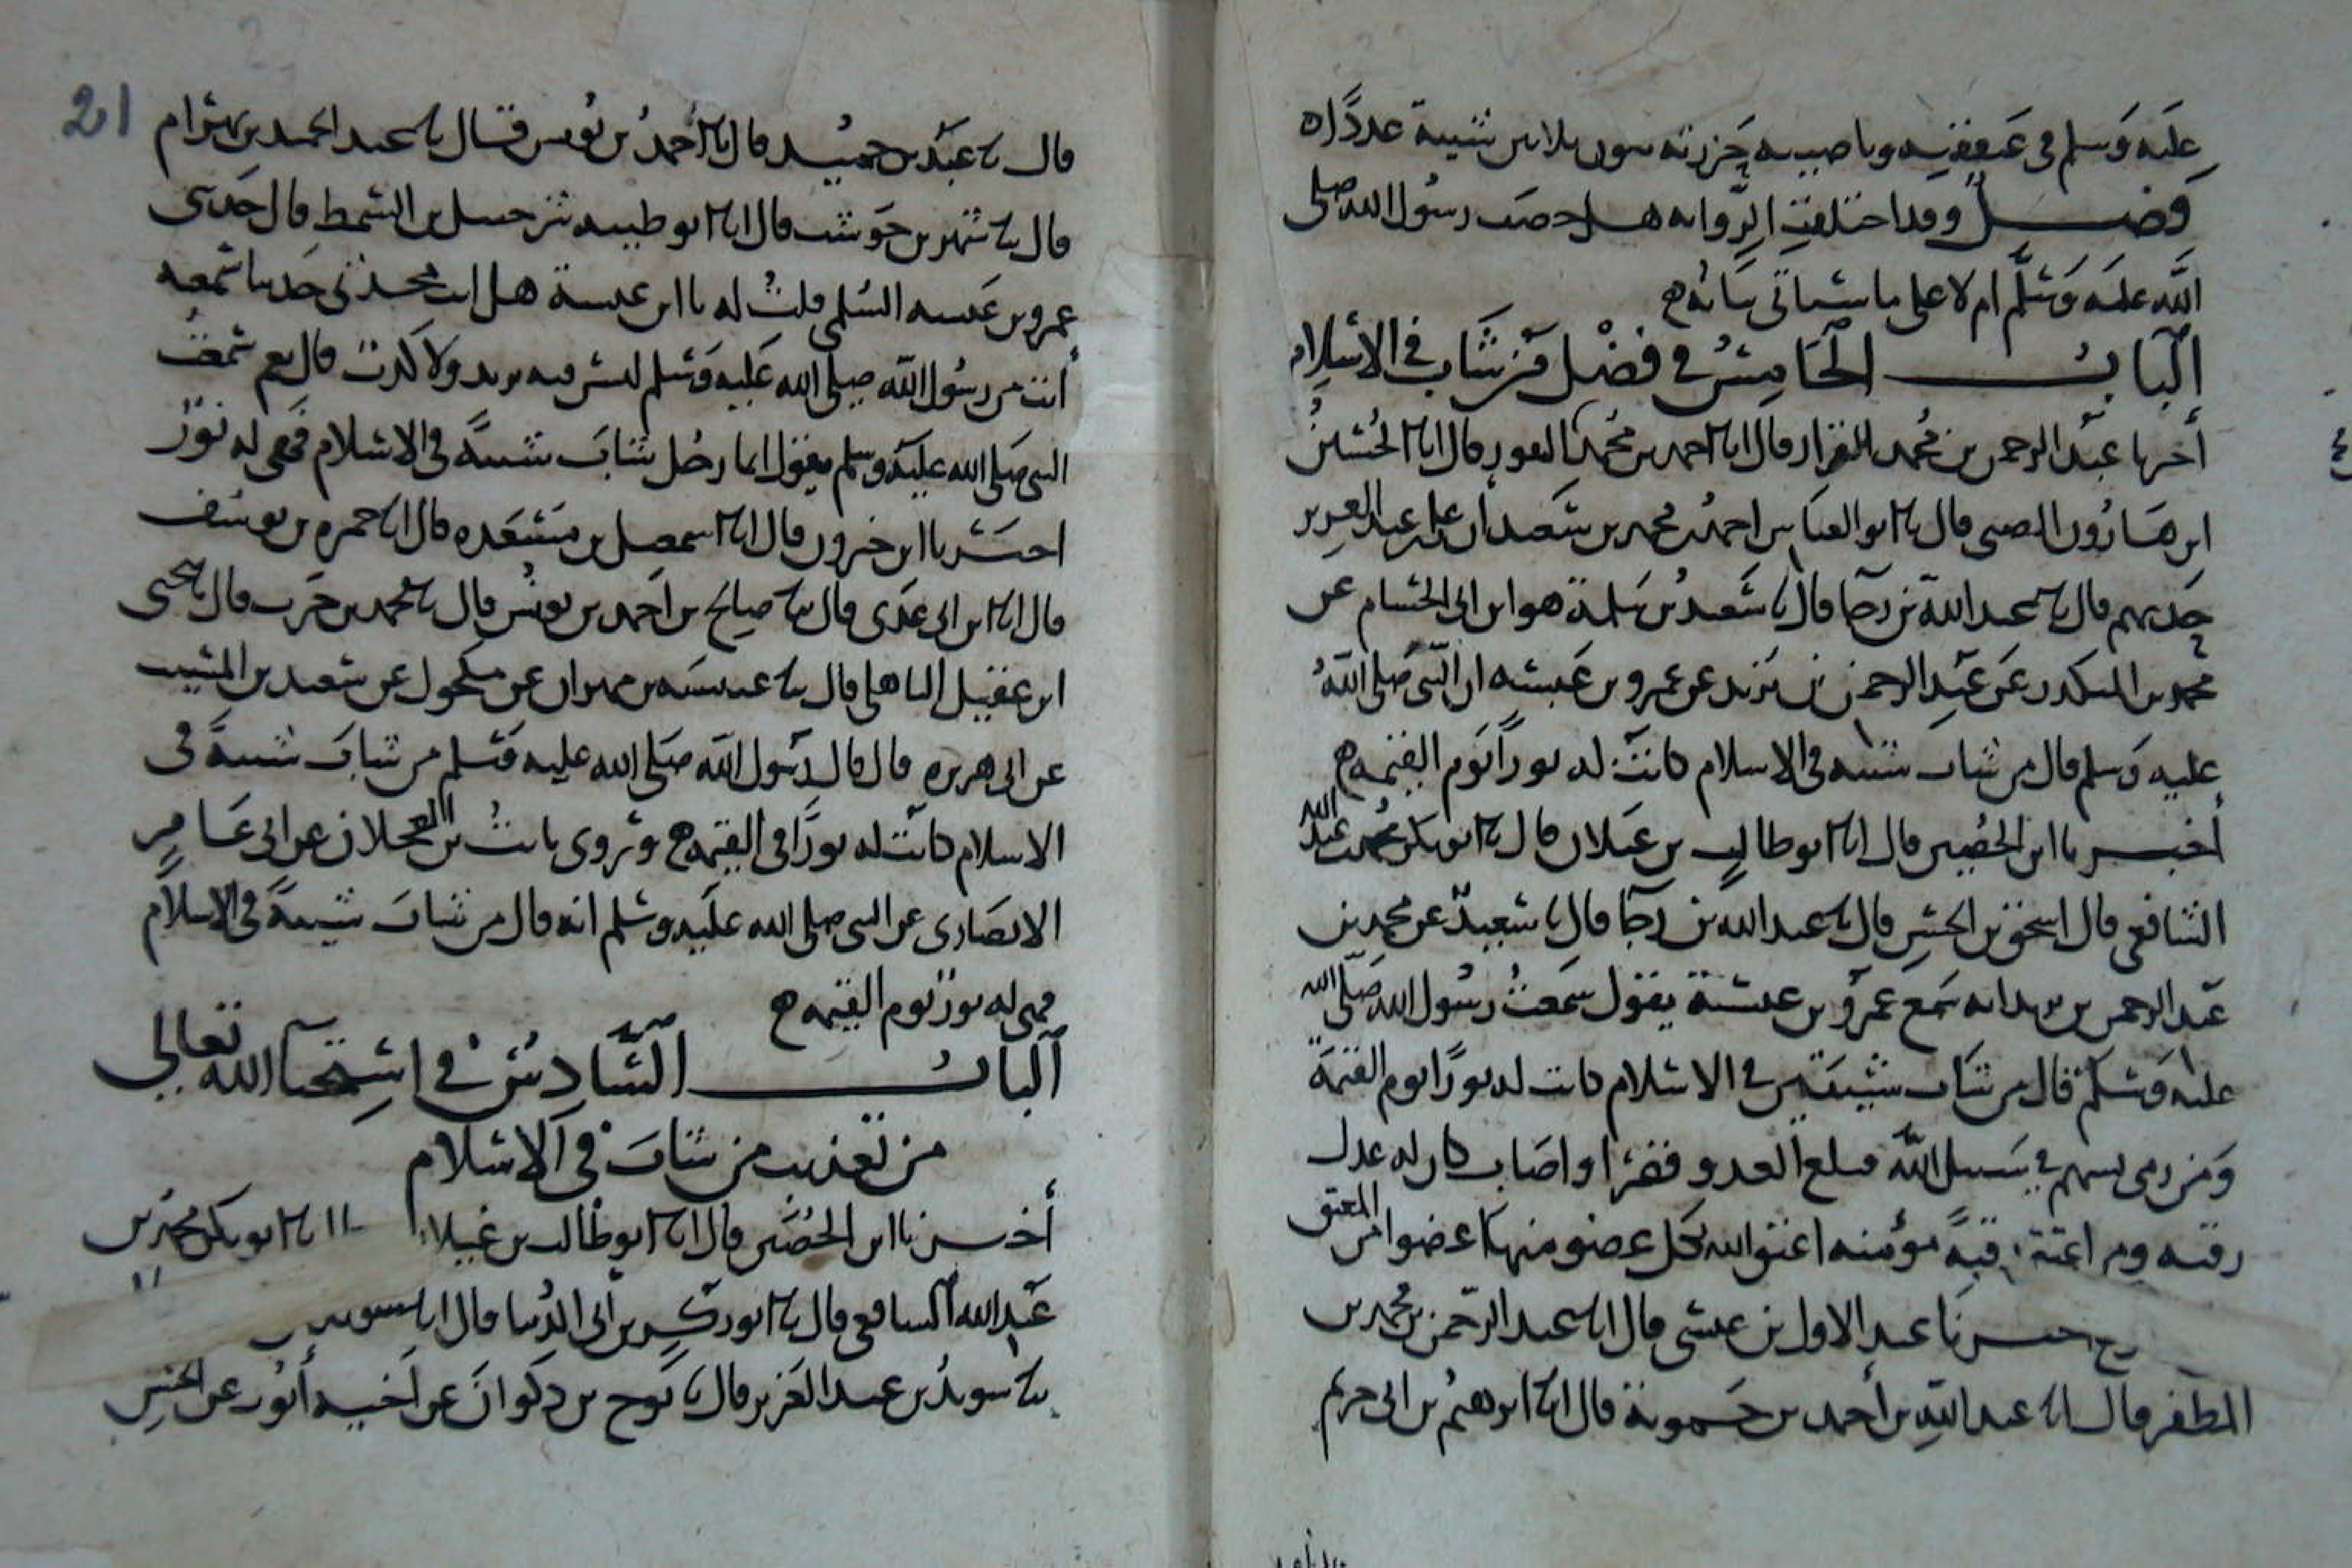 عليه وسلم في عنفقته وناصيته حزرته يكون ثلاثين شيبة عددا ه
فصل وقد اختلفت الرواية هل خضب رسول الله صلى
الله عليه وسلم ام لا على ما سيأتي بيانه ه
الباب الخامس في فضل من شاب في الاسلام
أخبرنا عبد الرحمن بن محمد القزاز قال انا احمد بن محمد بن النقور قال انا الحسين
ابن هارون الضبي قال نا ابو العباس احمد بن محمد بن سعيد أن علي بن عبد العزيز
حدثهم قال نا عبد الله بن رجا قال نا سعيد بن سلمة هو ابن ابي الحسام عن
محمد بن المنكدر عن عبد الرحمن بن يزيد عن عمرو بن عبسة ان النبي صلى الله
عليه وسلم قال من شاب شيبة في الاسلام كانت له نورا يوم القيمة ه
أخبرنا ابن الحصين قال انا ابو طالب بن غيلان قال نا ابو بكر محمد بن عبد الله
الشافعي قال اسحق بن الحسن قال نا عبد الله بن رجا قال نا سعيد عن محمد بن
عبد الرحمن بن يزيد انه سمع عمرو بن عبسة يقول سمعت رسول الله صلى الله
عليه وسلم قال من شاب شيبة في الاسلام كانت له نورا يوم القيمة
ومن رمى بسهم في سبيل الله فبلغ العدو فقصر او اصاب كان له عدل
رقبة ومن اعتق رقبة مؤمنة اعتق الله بكل عضو منها عضوا من المعتق
اخبرنا عبد الاول بن عيسى قال انا عبد الرحمن بن محمد بن
المظفر قال انا عبد الله بن أحمد بن حموية قال انا ابرهيم بن خريم
21
قال نا عبد بن حميد قال نا أحمد بن يونس قال نا عبد الحميد بن بهرام
قال نا شهر بن حوشب قال انا ابو طيبة شرحبيل بن السمط قال حدثني
عمرو بن عبسة السلمي قلت له يا ابن عبسة هل انت محدثني حديثا سمعته
أنت من رسول الله صلى الله عليه وسلم ليس فيه تزيد ولا كذب قال نعم سمعت
النبي صلى الله عليه وسلم يقول ايما رجل شاب شيبة في الاسلام فهي له نور
اخبرنا ابن خيرون قال انا اسمعيل بن مسعدة قال انا حمزة بن يوسف
قال انا ابن عدي قال نا صالح بن احمد بن يونس قال نا محمد بن حرب قال نا يحيى
ابن عقيل الباهلي قال نا عنبسة بن مهران عن مكحول عن سعيد بن المسيب
عن ابي هريرة قال قال رسول الله صلى الله عليه وسلم من شاب شيبة في
الاسلام كانت له نورا في القيمة ه وروى ثابت بن العجلان عن ابي عامر
الانصاري عن النبي صلى الله عليه وسلم انه قال من شاب شيبة في الاسلام
فهي له نور يوم القيمة ه
الباب السادس في استحيا الله تعالى
من تعذيب من شاب في الاسلام
أخبرنا ابن الحصين قال انا ابو طالب بن غيلان قال نا ابو بكر محمد بن
عبد الله الشافعي قال نا ابو بكر بن أبي الدنيا قال
نا سويد بن عبد العزيز قال نا نوح بن ذكوان عن أخيه أيوب عن الحسن